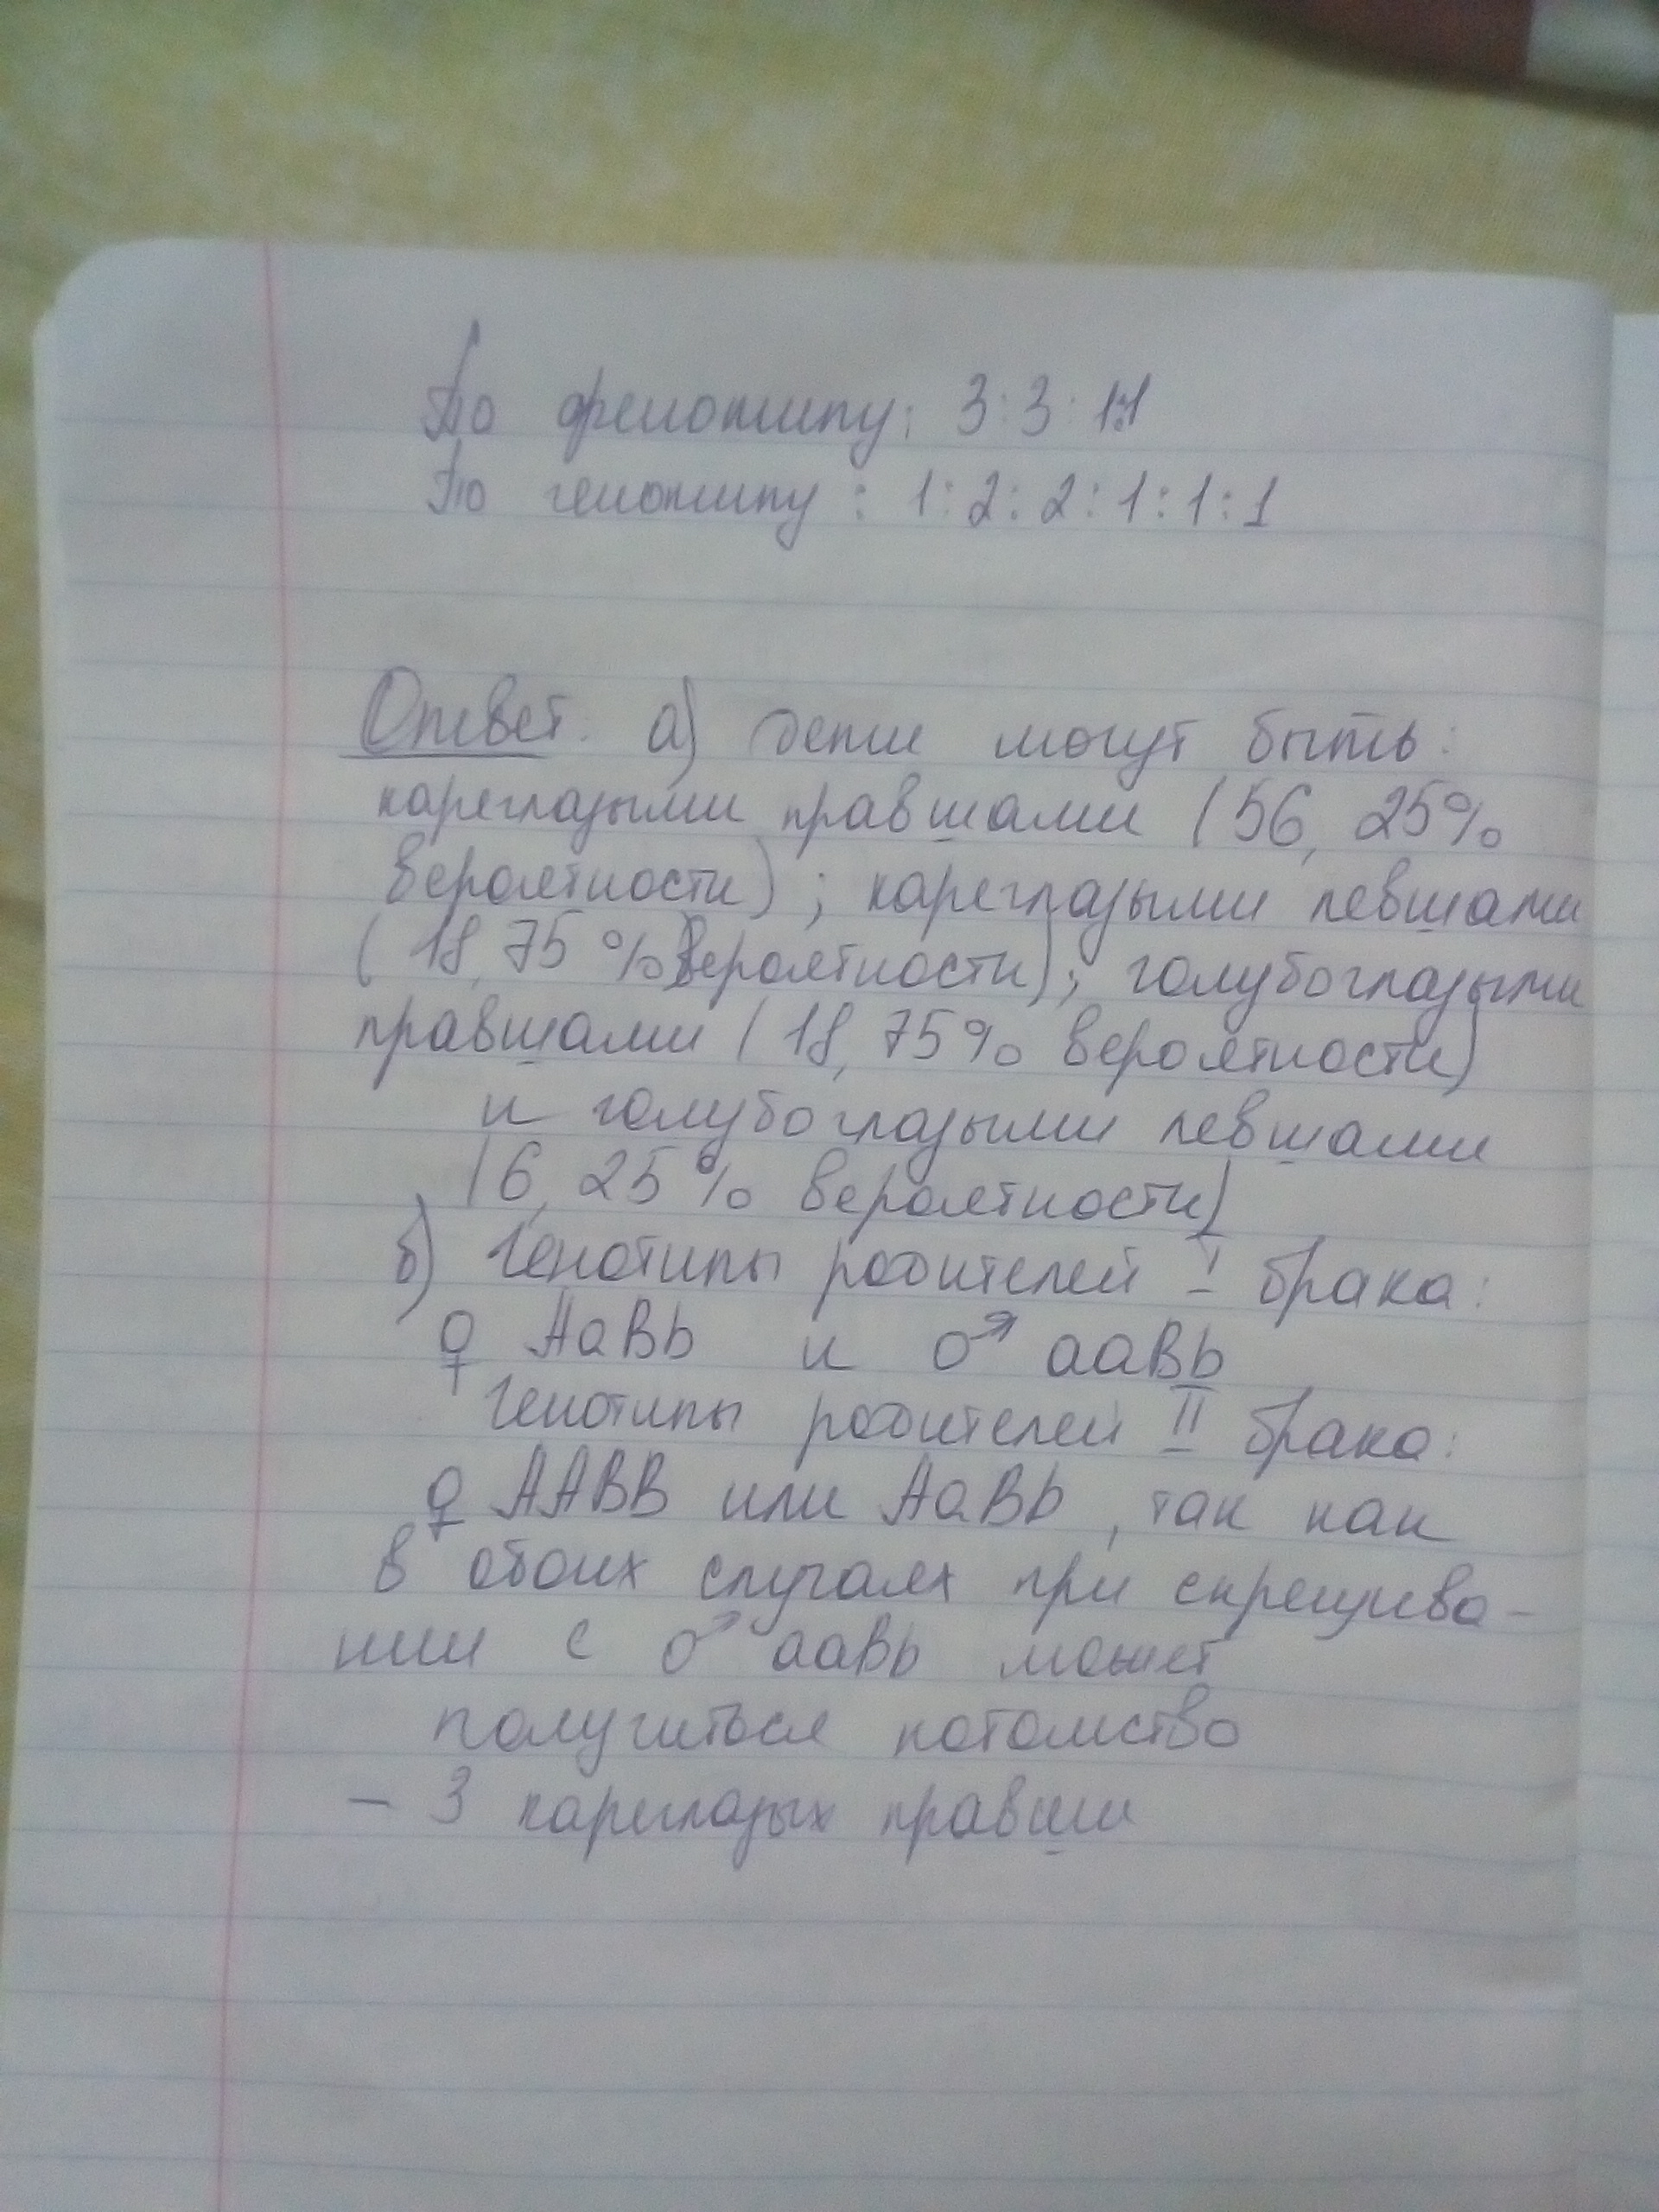 По фенотипу: 3:3:1:1
По генотипу: 1:2:2:1:1:1
Ответ. а) дети могут быть:
кареглазыми правшами (56,25%
вероятности); кареглазыми левшами
(18,75% вероятности); голубоглазыми
правшами (18,75% вероятности)
и голубоглазыми левшами
(6,25% вероятности)
б) Генотипы родителей I брака:
♀ AaBb и ♂ aaBb
Генотипы родителей II брака:
♀ AABB или AaBb, так как
в обоих случаях при скрещива-
нии с ♂ aaBb может
получиться потомство
- 3 кареглазых правши